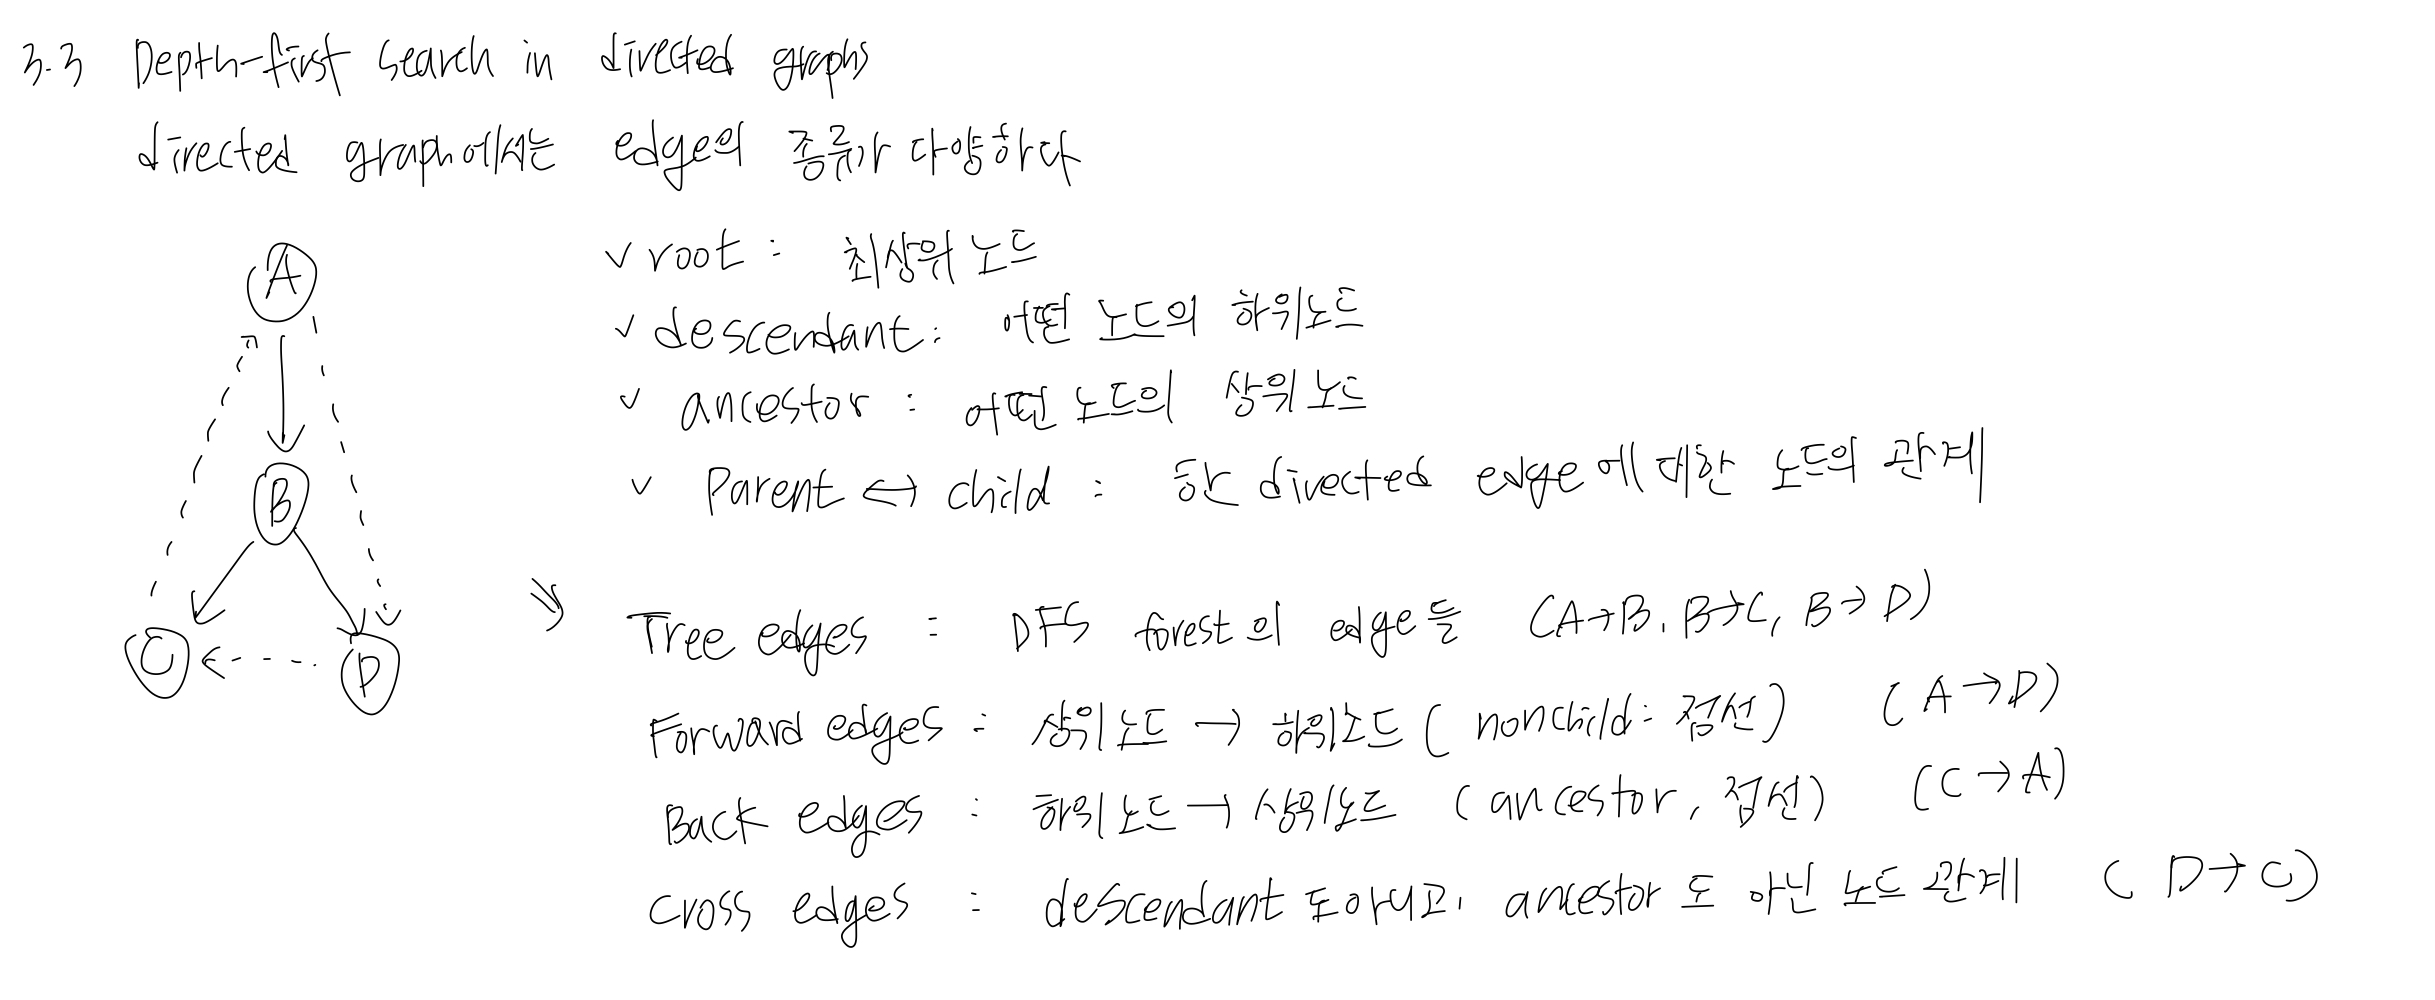 3.3 Depth-first search in directed graphs
directed graph에서는 edge의 종류가 다양하다
A
B
C
D
✓ root : 최상위 노드
✓ descendant : 어떤 노드의 하위노드
✓ ancestor : 어떤 노드의 상위 노드
✓ Parent ↔ child : 한 directed edge에 대한 노드의 관계
⇒ Tree edges : DFS forest의 edge들 (A→B, B→C, B→D)
Forward edges : 상위노드 → 하위노드 (nonchild : 점선) (A→D)
Back edges : 하위노드 → 상위노드 (ancestor, 점선) (C→A)
Cross edges : descendant도 아니고, ancestor도 아닌 노드 관계 (D→C)